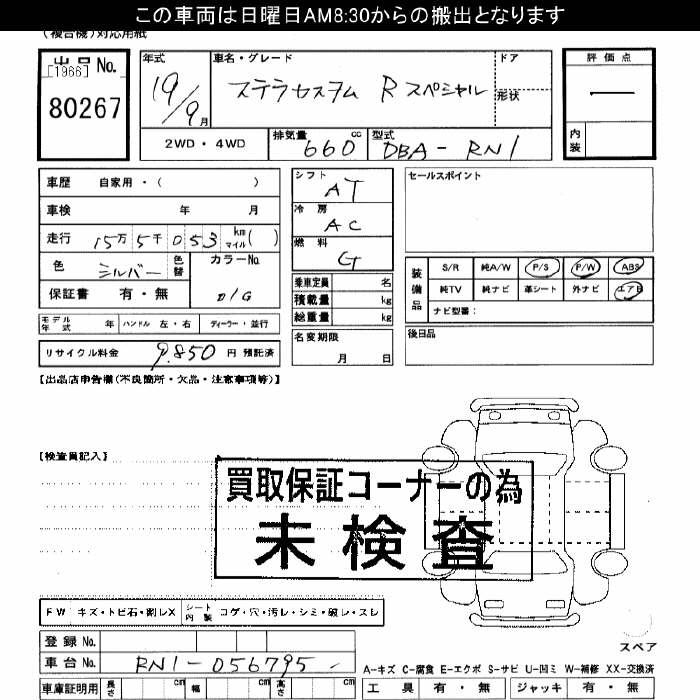 この車両は日曜日AM8:30からの搬出となります
(複合機)対応用紙
出品No.
[1966]
80267
年式
19/9月
車名・グレード
ステラカスタム Rスペシャル
ドア
形状
評価点
—
内装
2WD・4WD
排気量 660 cc
型式 DBA-RN1
車歴 自家用・( )
車検 年 月
走行 15万5千053 km マイル( )
色 シルバー 色替
カラーNo. D1G
保証書 有・無
シフト AT
冷房 AC
燃料 G
乗車定員 名
積載量 kg
総重量 kg
セールスポイント
装備品
S/R 純A/W P/S P/W ABS
純TV 純ナビ 革シート 外ナビ エアB
ナビ型番:
モデル年式 年 ハンドル 左・右 ディーラー・並行
名変期限
月 日
後日品
リサイクル料金 9.850 円 預託済
【出品店申告欄(不良箇所・欠品・注意事項等)】
【検査員記入】
買取保証コーナーの為
未検査
FW キズ・トビ石・割レX
シート内装 コゲ・穴・汚レ・シミ・破レ・スレ
登録No.
車台No. RN1-056795
スペア
A-キズ C-腐食 E-エクボ S-サビ U-凹ミ W-補修 XX-交換済
車庫証明用 長さ cm 幅 cm 高さ cm
工具 有・無 ジャッキ 有・無